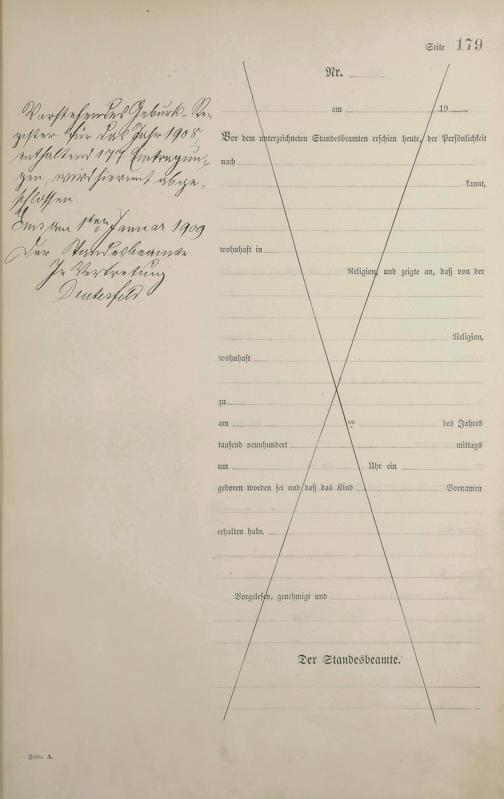 Seite 179
Nr.
am 19
Vorstehendes Geburts-Re-
gister für das Jahr 1908,
enthaltend 177 Eintragun-
gen, wird hiermit abge-
schlossen
Ems am 1ten Januar 1909
Der Standesbeamte
In Vertretung
Vor dem unterzeichneten Standesbeamten erschien heute, der Persönlichkeit
nach
kannt,
wohnhaft in
Religion, und zeigte an, daß von der
Religion,
wohnhaft
zu
am ten des Jahres
tausend neunhundert mittags
um Uhr ein
geboren worden sei und daß das Kind Vornamen
erhalten habe.
Vorgelesen, genehmigt und
Der Standesbeamte.
Form. A.